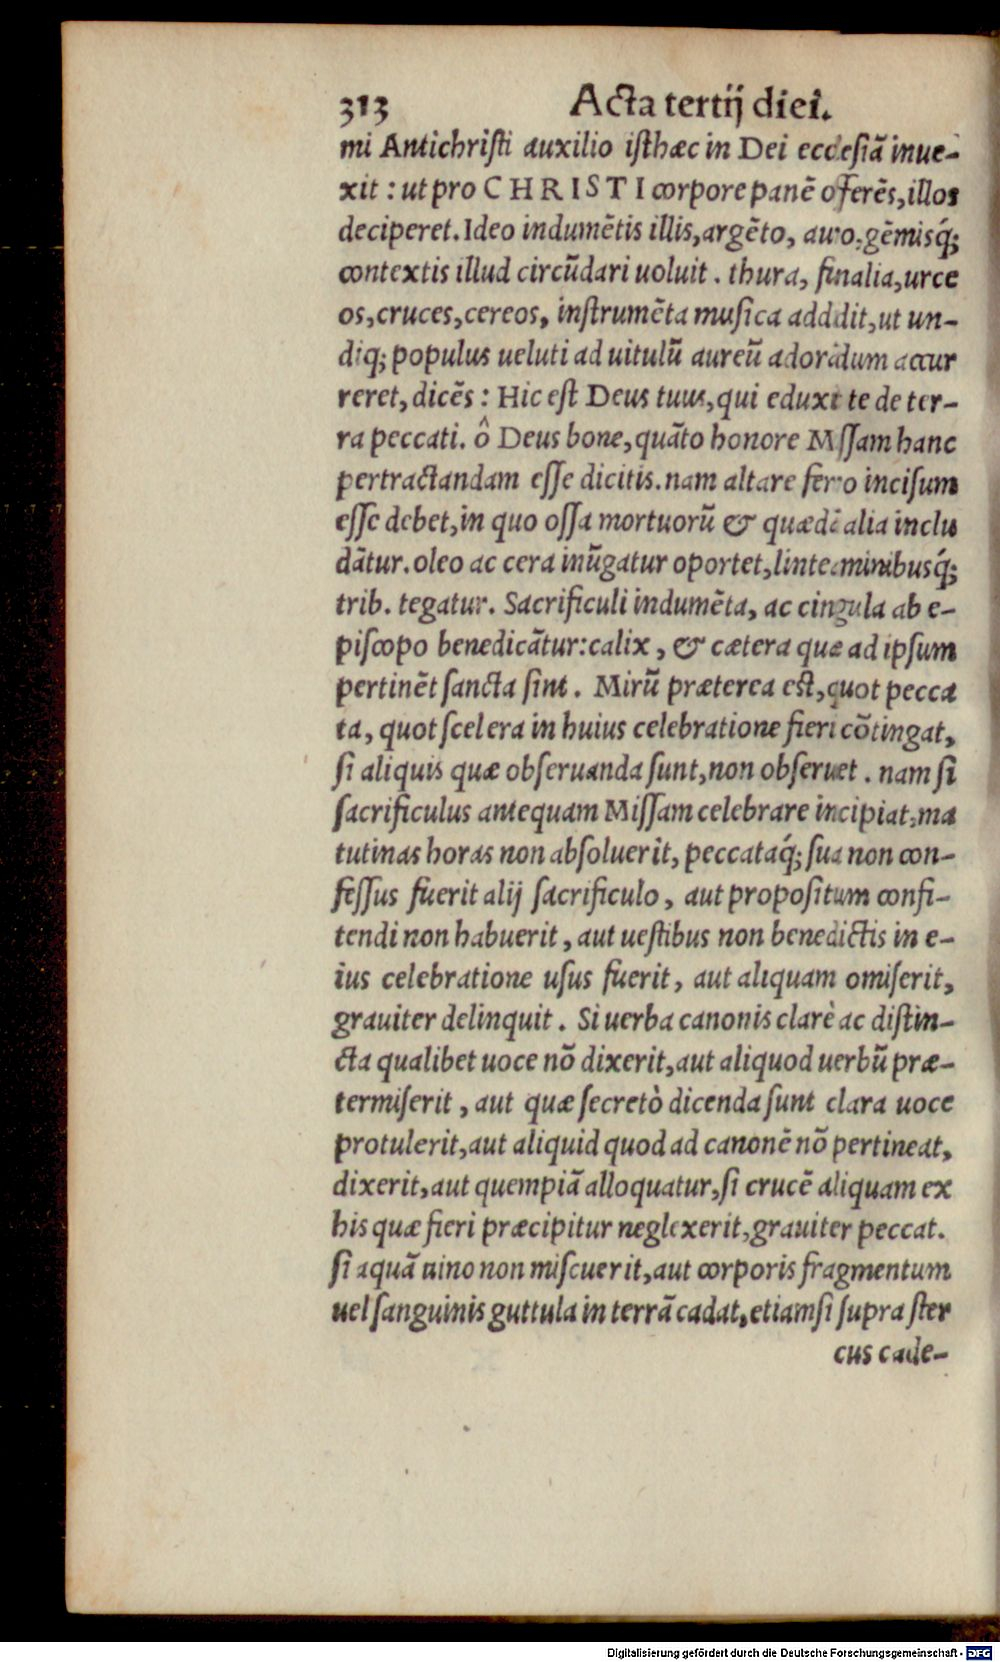 313 Acta tertij diei.
mi Antichristi auxilio isthæc in Dei ecclesiã inue-
xit : ut pro CHRISTI corpore panẽ offerẽs, illos
deciperet. Ideo indumẽtis illis, argẽto, auro, gẽmisq́;
contextis illud circũdari uoluit . thura, finalia, urce
os, cruces, cereos, instrumẽta musica adddit, ut un-
diq; populus ueluti ad uitulũ aureũ adorãdum accur
reret, dicẽs : Hic est Deus tuus, qui eduxit te de ter-
ra peccati. ô Deus bone, quãto honore Missam hanc
pertractandam esse dicitis. nam altare ferro incisum
esse debet, in quo ossa mortuorũ & quædã alia inclu
dãtur. oleo ac cera inũgatur oportet, linteaminibusq́;
trib. tegatur. Sacrificuli indumẽta, ac cingula ab e-
piscopo benedicãtur: calix , & cætera quæ ad ipsum
pertinẽt sancta sint . Mirũ præterea est, quot pecca
ta, quot scelera in huius celebratione fieri cõtingat,
si aliquis quæ obseruanda sunt, non obseruet . nam si
sacrificulus antequam Missam celebrare incipiat, ma
tutinas horas non absoluerit, peccataq́; sua non con-
fessus fuerit alij sacrificulo , aut propositum confi-
tendi non habuerit , aut uestibus non benedictis in e-
ius celebratione usus fuerit , aut aliquam omiserit,
grauiter delinquit . Si uerba canonis clarè ac distin-
cta qualibet uoce nõ dixerit, aut aliquod uerbũ præ-
termiserit , aut quæ secretò dicenda sunt clara uoce
protulerit, aut aliquid quod ad canonẽ nõ pertineat,
dixerit, aut quempiã alloquatur, si crucẽ aliquam ex
his quæ fieri præcipitur neglexerit, grauiter peccat.
si aquã uino non miscuerit, aut corporis fragmentum
uel sanguinis guttula in terrã cadat, etiamsi supra ster
cus cade-
Digitalisierung gefördert durch die Deutsche Forschungsgemeinschaft - DFG